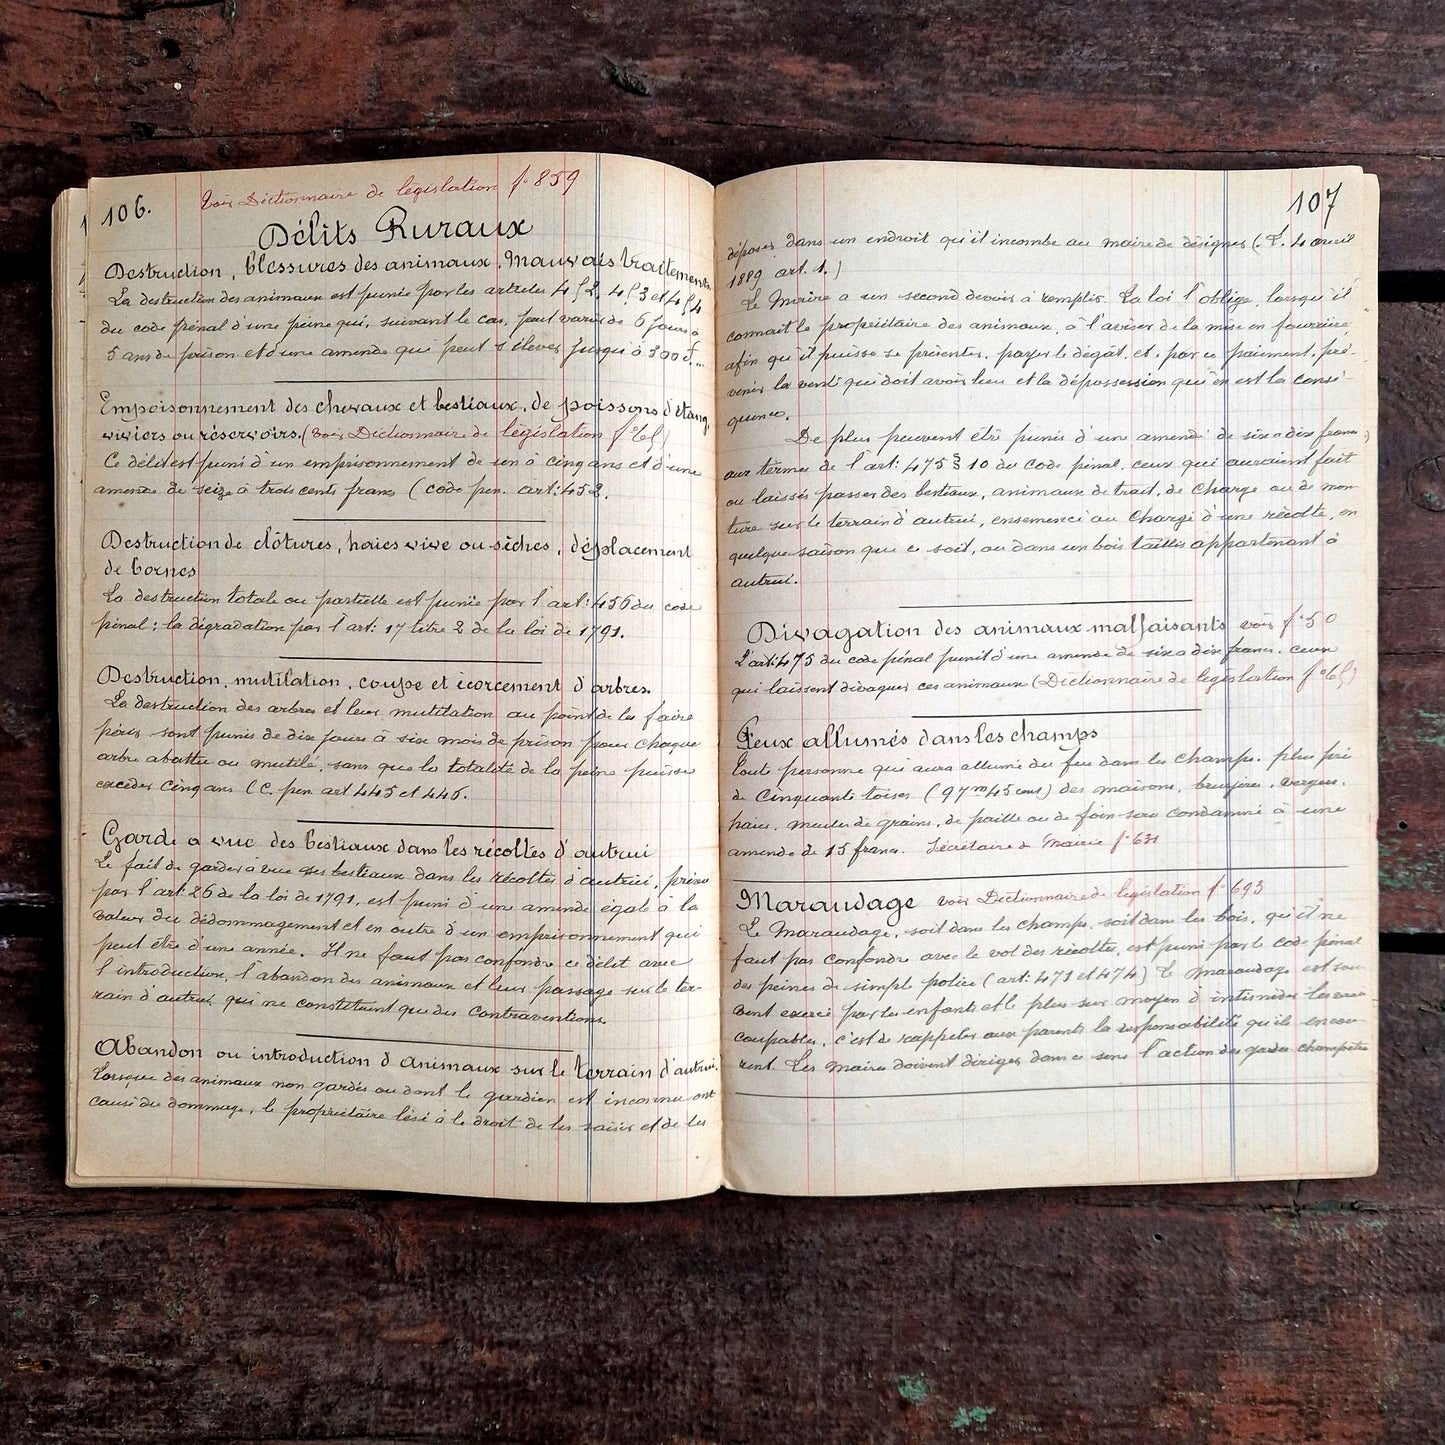 106.
Voir Dictionnaire de législation f° 859
Délits Ruraux
Destruction, blessures des animaux. Mauvais traitements
La destruction des animaux est punie par les articles 452, 453 et 454
du code pénal d'une peine qui, suivant le cas, peut varier de 6 jours à
5 ans de prison et d'une amende qui peut s'élever jusqu'à 300 f...
Empoisonnement des chevaux et bestiaux, de poissons d'étang,
viviers ou réservoirs. (Voir Dictionnaire de législation f°
Ce délit est puni d'un emprisonnement de un à cinq ans et d'une
amende de seize à trois cents francs (code pen. art: 452.
Destruction de clôtures, haies vive ou sèches, déplacement
de bornes
La destruction totale ou partielle est punie par l'art: 456 du code
pénal; la dégradation par l'art: 17 titre 2 de la loi de 1791.
Destruction, mutilation, coupe et écorcement d'arbres.
La destruction des arbres et leur mutilation au point de les faire
périr sont punis de dix jours à six mois de prison pour chaque
arbre abattu ou mutilé, sans que la totalité de la peine puisse
excéder cinq ans (C. pen art 445 et 446.
Garde a vue des bestiaux dans les récoltes d'autrui
Le fait de garder à vue des bestiaux dans les récoltes d'autrui, prévu
par l'art: 26 de la loi de 1791, est puni d'une amende égale à la
valeur du dédommagement et en outre d'un emprisonnement qui
peut être d'une année. Il ne faut pas confondre ce délit avec
l'introduction, l'abandon des animaux et leur passage sur le ter-
rain d'autrui, qui ne constituent que des contraventions.
Abandon ou introduction d'animaux sur le terrain d'autrui.
Lorsque des animaux non gardés ou dont le gardien est inconnu ont
causé du dommage, le propriétaire lésé à le droit de les saisir et de les
107
déposer dans un endroit qu'il incombe au maire de désigner (L. 4 avril
1889 art. 1.)
Le Maire a un second devoir à remplir. La loi l'oblige, lorsqu'il
connait le propriétaire des animaux, à l'aviser de la mise en fourrière
afin qu'il puisse se présenter, payer le dégât, et, par ce paiement, pré-
venir la vente qui doit avoir lieu et la dépossession qui en est la consé-
quence.
De plus peuvent être punis d'un amende de six a dix francs
aux termes de l'art: 475 § 10 du Code pénal, ceux qui auraient fait
ou laissés passer des bestiaux, animaux de trait, de charge ou de mon-
ture sur le terrain d'autrui, ensemencé ou chargé d'une récolte, en
quelque saison que ce soit, ou dans un bois taillis appartenant à
autrui.
Divagation des animaux malfaisants voir f° 50
L'art: 475 du code pénal punit d'une amende de six a dix francs, ceux
qui laissent divaguer ces animaux (Dictionnaire de législation f°
Feux allumés dans les champs
Toute personne qui aura allumé du feu dans les champs, plus près
de Cinquante toises (97m45 cent) des maisons, bruyères, vergers,
haies, meules de grains, de paille ou de foin sera condamné à une
amende de 15 francs. Secrétaire de Mairie f° 631
Maraudage voir Dictionnaire de législation f° 693
Le Maraudage, soit dans les champs, soit dans les bois, qu'il ne
faut pas confondre avec le vol des récoltes, est puni par le code pénal
des peines de simple police (art: 471 et 474) Le maraudage est sou-
vent exercé par les enfants et le plus sur moyen d'intimider les vrais
coupables, c'est de rappeler aux parents la responsabilité qu'ils encou-
rent. Les maires doivent diriger dans ce sens l'action des gardes champêtres